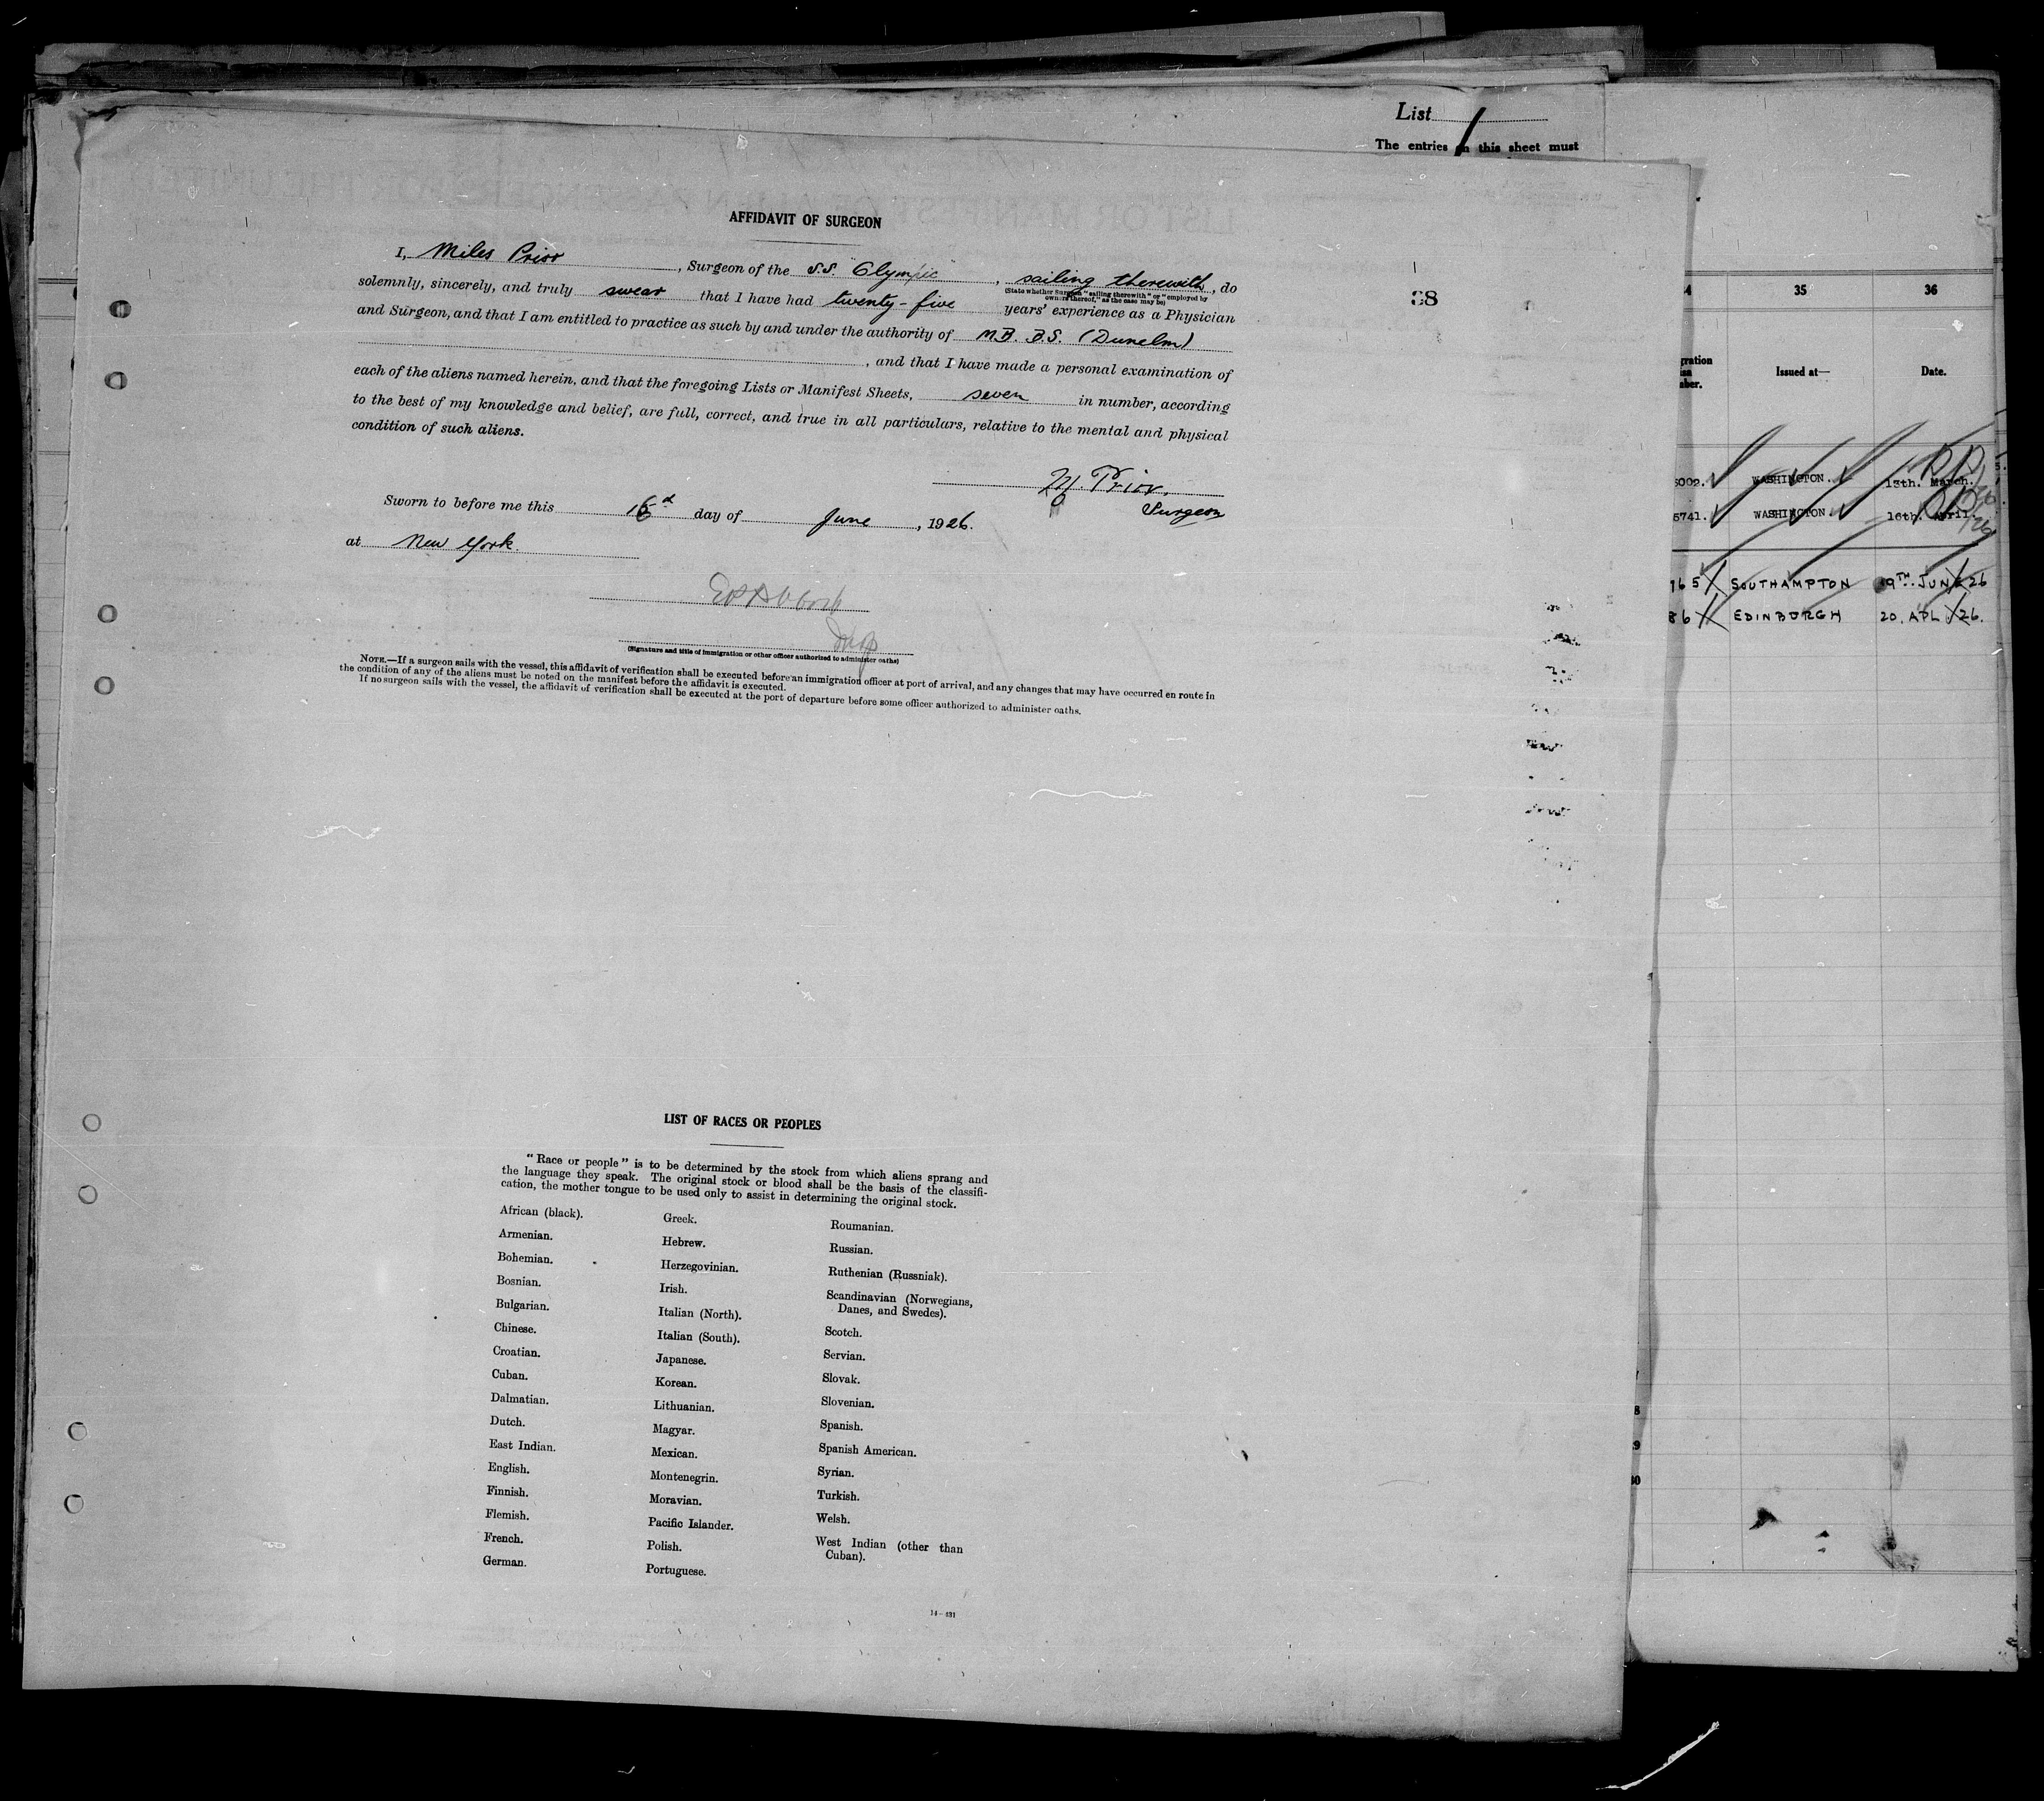 List
The entries on this sheet must
AFFIDAVIT OF SURGEON
I, Miles Prior, Surgeon of the S.S. "Olympic", sailing therewith, do
(State whether Surgeon "sailing therewith" or "employed by
owners thereof," as the case may be)
solemnly, sincerely, and truly swear that I have had twenty-five years' experience as a Physician
and Surgeon, and that I am entitled to practice as such by and under the authority of M.B. B.S. (Dunelm)
, and that I have made a personal examination of
each of the aliens named herein, and that the foregoing Lists or Manifest Sheets, seven in number, according
to the best of my knowledge and belief, are full, correct, and true in all particulars, relative to the mental and physical
condition of such aliens.
M. Prior.
Surgeon
Sworn to before me this day of June, 1926.
at New York.
(Signature and title of immigration or other officer authorized to administer oaths)
NOTE.—If a surgeon sails with the vessel, this affidavit of verification shall be executed before an immigration officer at port of arrival, and any changes that may have occurred en route in
the condition of any of the aliens must be noted on the manifest before the affidavit is executed.
If no surgeon sails with the vessel, the affidavit of verification shall be executed at the port of departure before some officer authorized to administer oaths.
LIST OF RACES OR PEOPLES
"Race or people" is to be determined by the stock from which aliens sprang and
the language they speak. The original stock or blood shall be the basis of the classifi-
cation, the mother tongue to be used only to assist in determining the original stock.
African (black).
Armenian.
Bohemian.
Bosnian.
Bulgarian.
Chinese.
Croatian.
Cuban.
Dalmatian.
Dutch.
East Indian.
English.
Finnish.
Flemish.
French.
German.
Greek.
Hebrew.
Herzegovinian.
Irish.
Italian (North).
Italian (South).
Japanese.
Korean.
Lithuanian.
Magyar.
Mexican.
Montenegrin.
Moravian.
Pacific Islander.
Polish.
Portuguese.
Roumanian.
Russian.
Ruthenian (Russniak).
Scandinavian (Norwegians,
Danes, and Swedes).
Scotch.
Servian.
Slovak.
Slovenian.
Spanish.
Spanish American.
Syrian.
Turkish.
Welsh.
West Indian (other than
Cuban).
14-431
4 35 36
gration
Issued at— Date.
6002. WASHINGTON. 13th. March.
5741. WASHINGTON. 16th. April.
765 SOUTHAMPTON 9TH JUNE 26
86 EDINBURGH 20. APL 26.
8
9
30